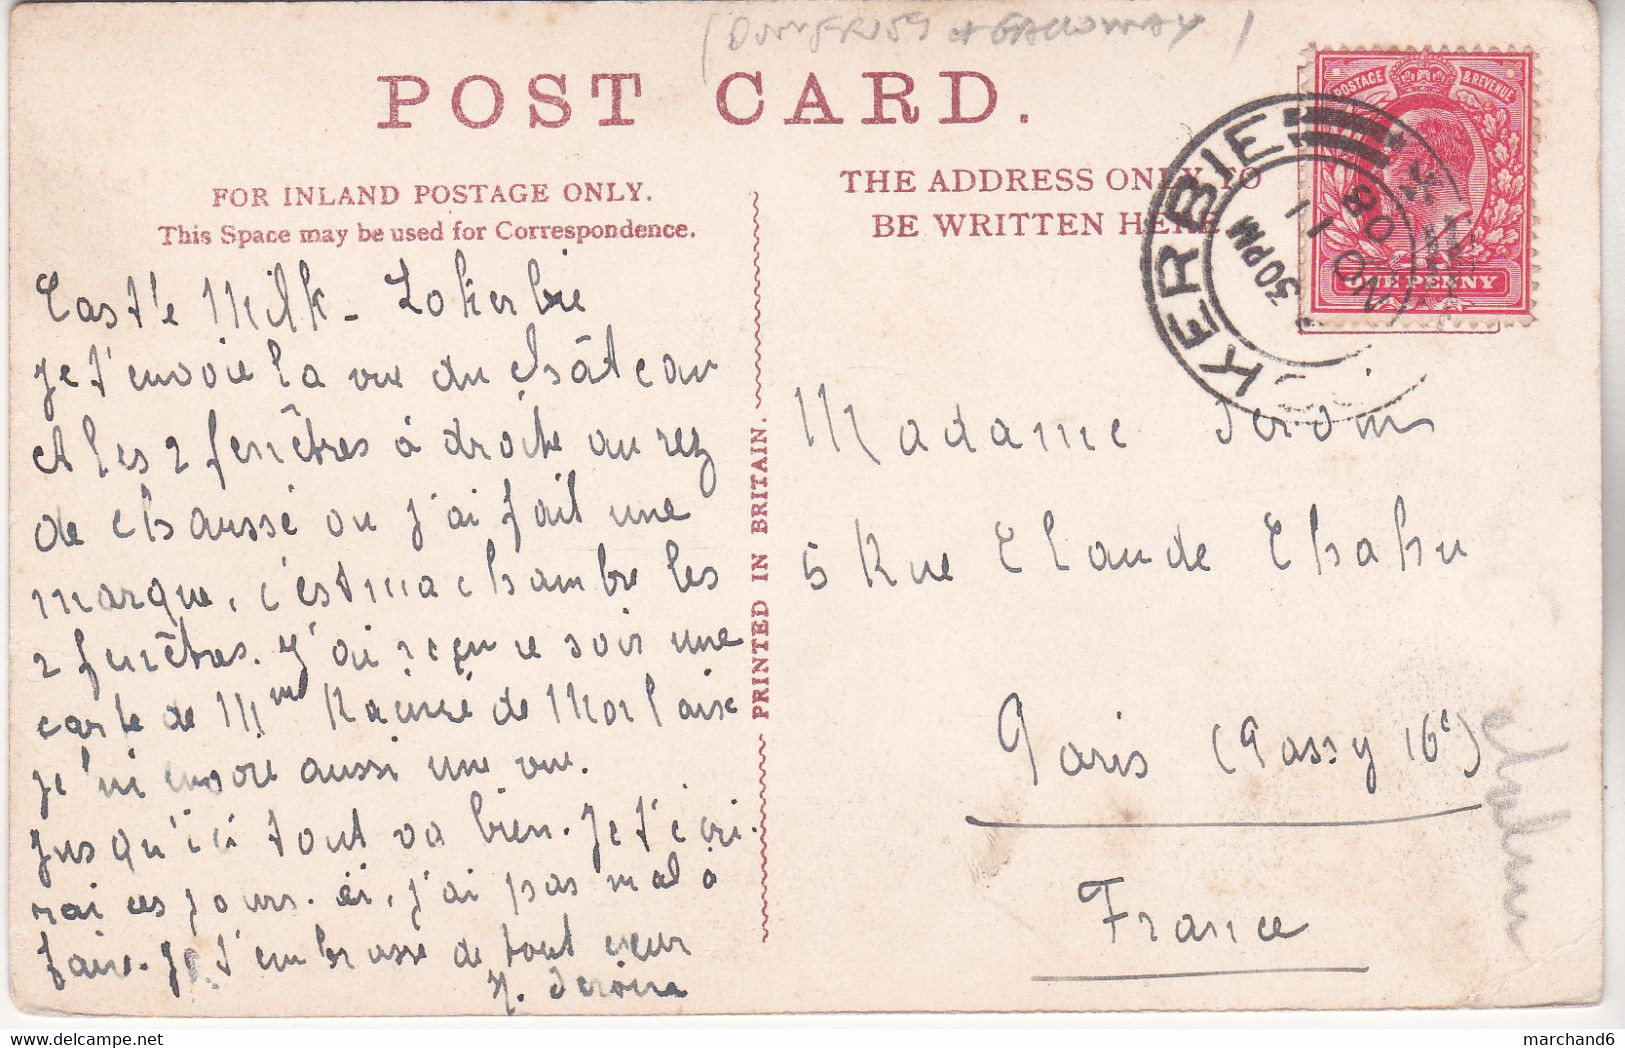 (DUMFRIES + GALLOWAY)
POST CARD.
FOR INLAND POSTAGE ONLY.
This Space may be used for Correspondence.
THE ADDRESS ONLY TO
BE WRITTEN HERE
POSTAGE & REVENUE
ONE PENNY
KERBIE
30 PM
NO 1
08
Castle Milk - Lokerbie
Je t'envoie la vue du château
et les 2 fenêtres à droite au rez
de chaussé ou j'ai fait une
marque, c'est ma chambre les
2 fenêtres. J'ai reçu ce soir une
carte de Mme de Morlaix
je lui envoie aussi une vue.
Jusqu'ici tout va bien. Je t'écri-
rai ces jours. ci, j'ai pas mal à
faire. Je t'embrasse de tout cœur
PRINTED IN BRITAIN.
Madame
5 Rue Claude Chahu
Paris (Passy 16e)
France
marchand6